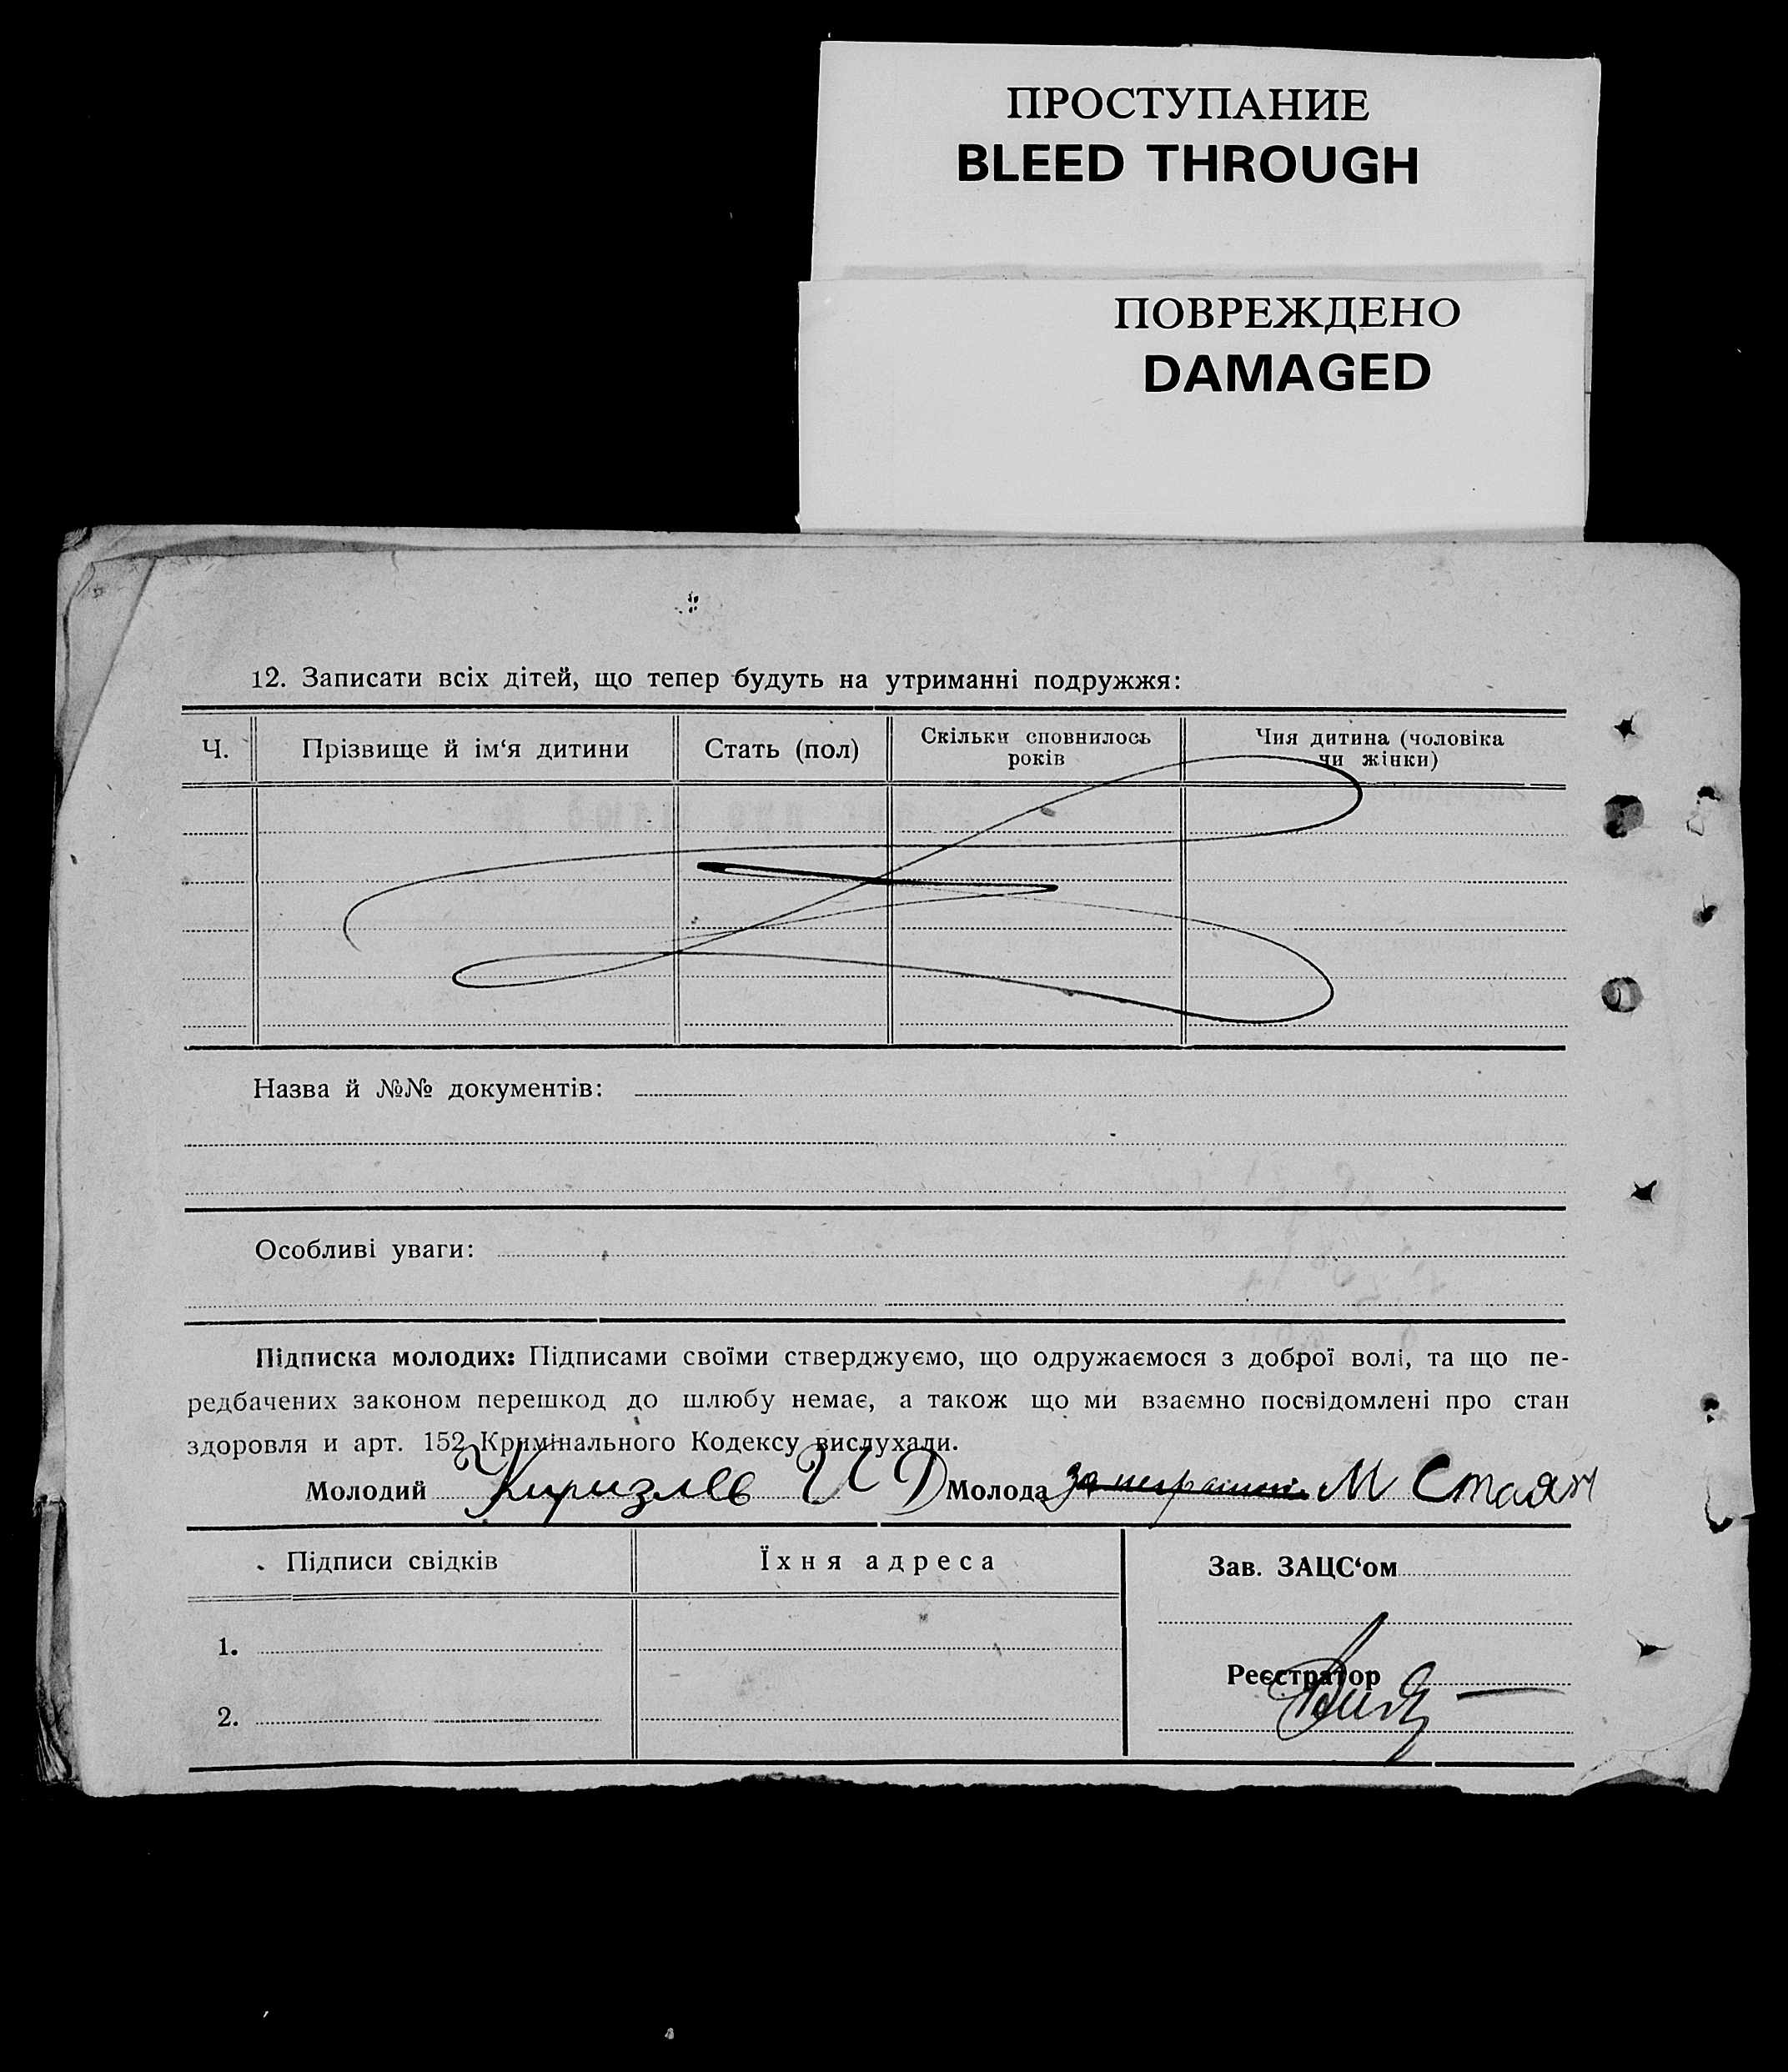 ПРОСТУПАНИЕ
BLEED THROUGH
ПОВРЕЖДЕНО
DAMAGED
12. Записати всіх дітей, що тепер будуть на утриманні подружжя:
Ч. Прізвище й ім‘я дитини Стать (пол) Скільки сповнилось років Чия дитина (чоловіка чи жінки)
Назва й №№ документів:
Особливі уваги:
Підписка молодих: Підписами своїми стверджуємо, що одружаємося з доброї волі, та що пе-
редбачених законом перешкод до шлюбу немає, а також що ми взаємно посвідомлені про стан
здоровля и арт. 152 Кримінального Кодексу вислухали.
Молодий Киризлєв И Д Молода М Стаян
Підписи свідків Їхня адреса Зав. ЗАЦС‘ом
1.
Реєстратор
2.